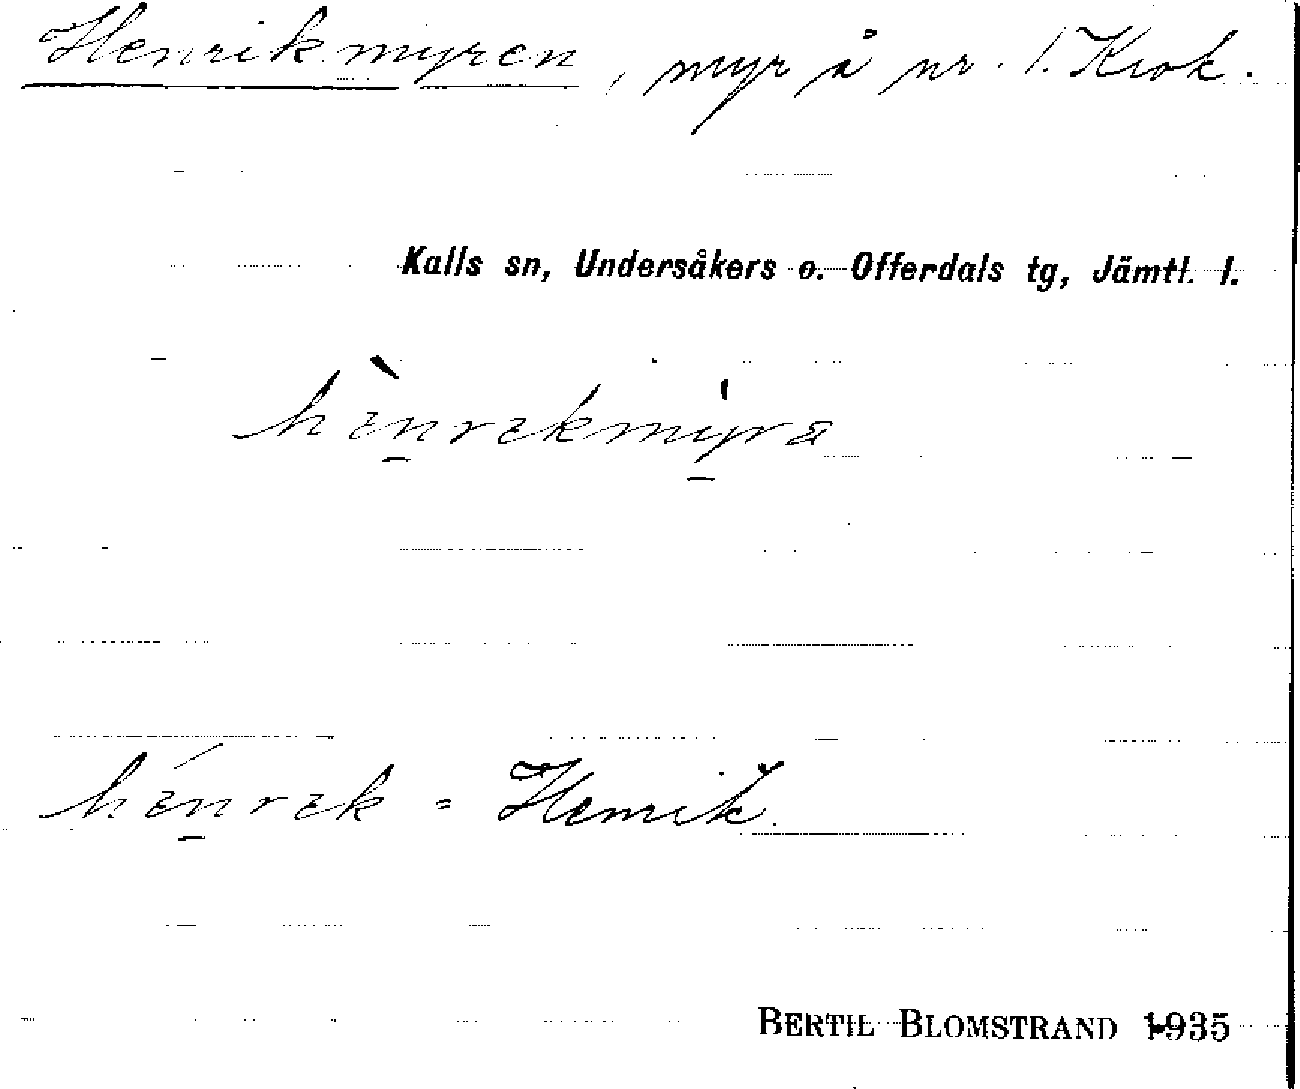 Henrikmyren, myr å nr. 1. Krok.
Kalls sn, Undersåkers o. Offerdals tg, Jämtl. l.
hènrekmyra
hénrek = Henrik.
BERTIL BLOMSTRAND 1935